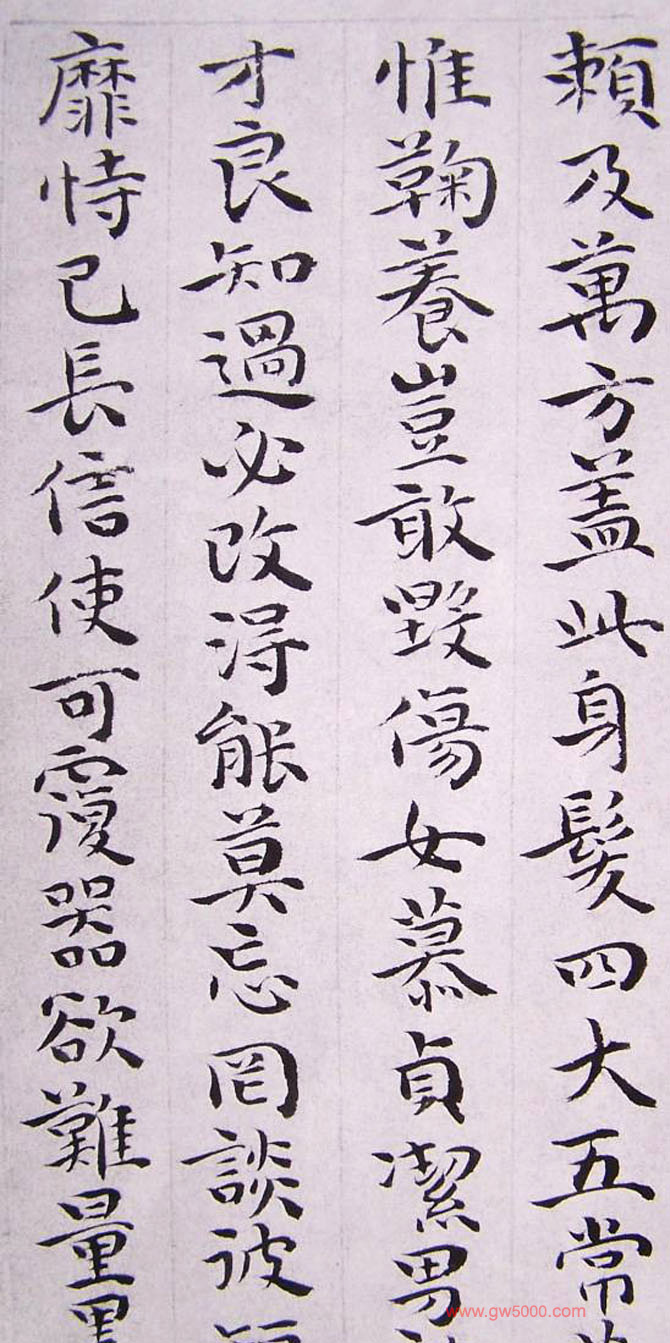 賴及萬方蓋此身髮四大五常
惟鞠養豈敢毀傷女慕貞潔男
才良知過必改得能莫忘罔談彼
靡恃己長信使可覆器欲難量墨
www.gw5000.com